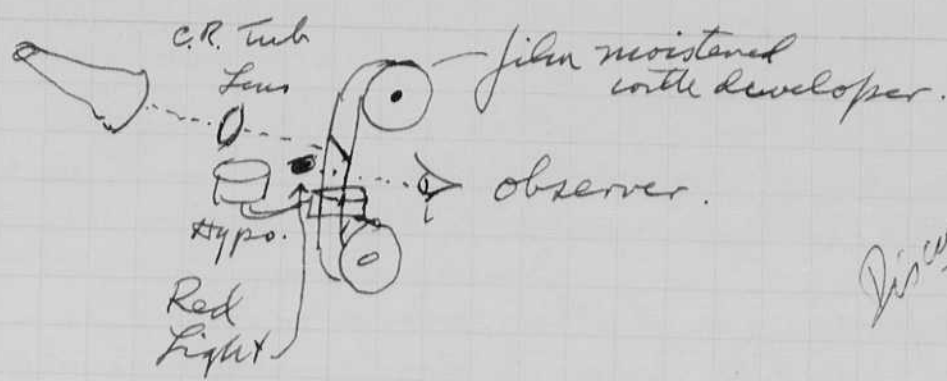 C.R. Tub
Lens
film moistened
with developer.
observer.
Hypo.
Red
Light